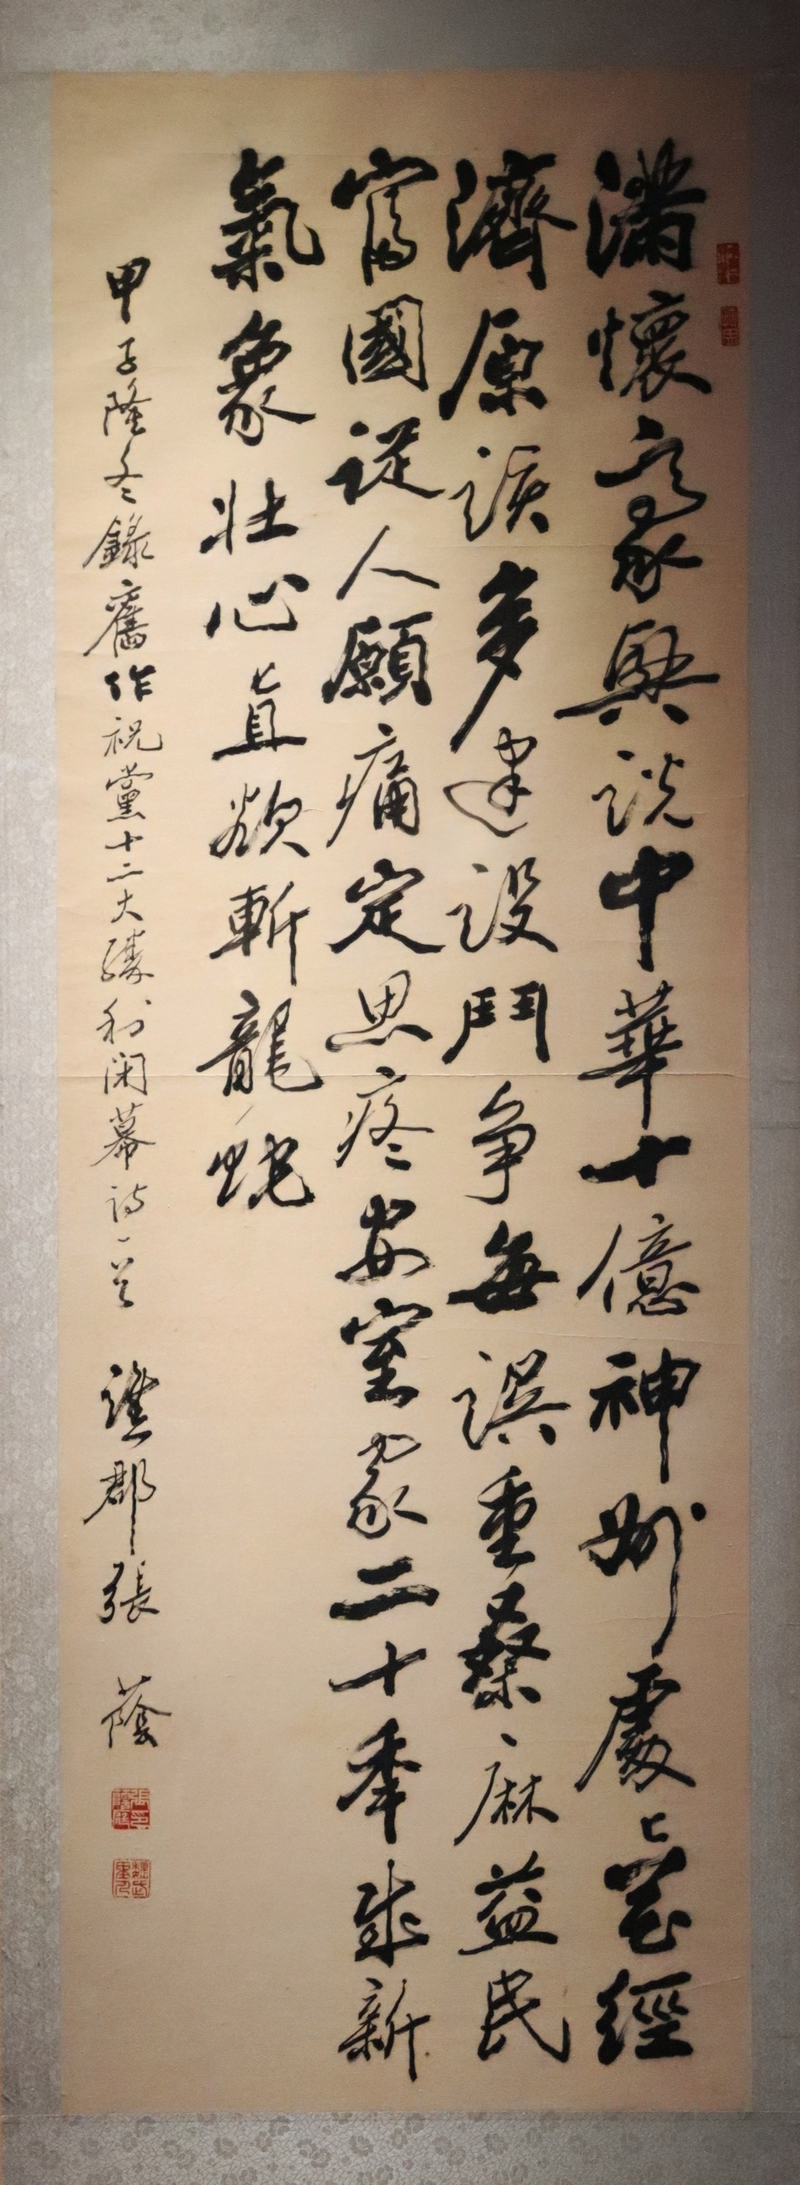 滿懷豪興說中華十億神州處處花經
濟原該多建設鬥爭每誤重桑麻益民
富國從人願痛定思疼安室家二十季來新
氣象壯心直欲斬龍蛇
甲子隆冬錄舊作祝黨十二大勝利閉幕詩一首
譙郡張蔭